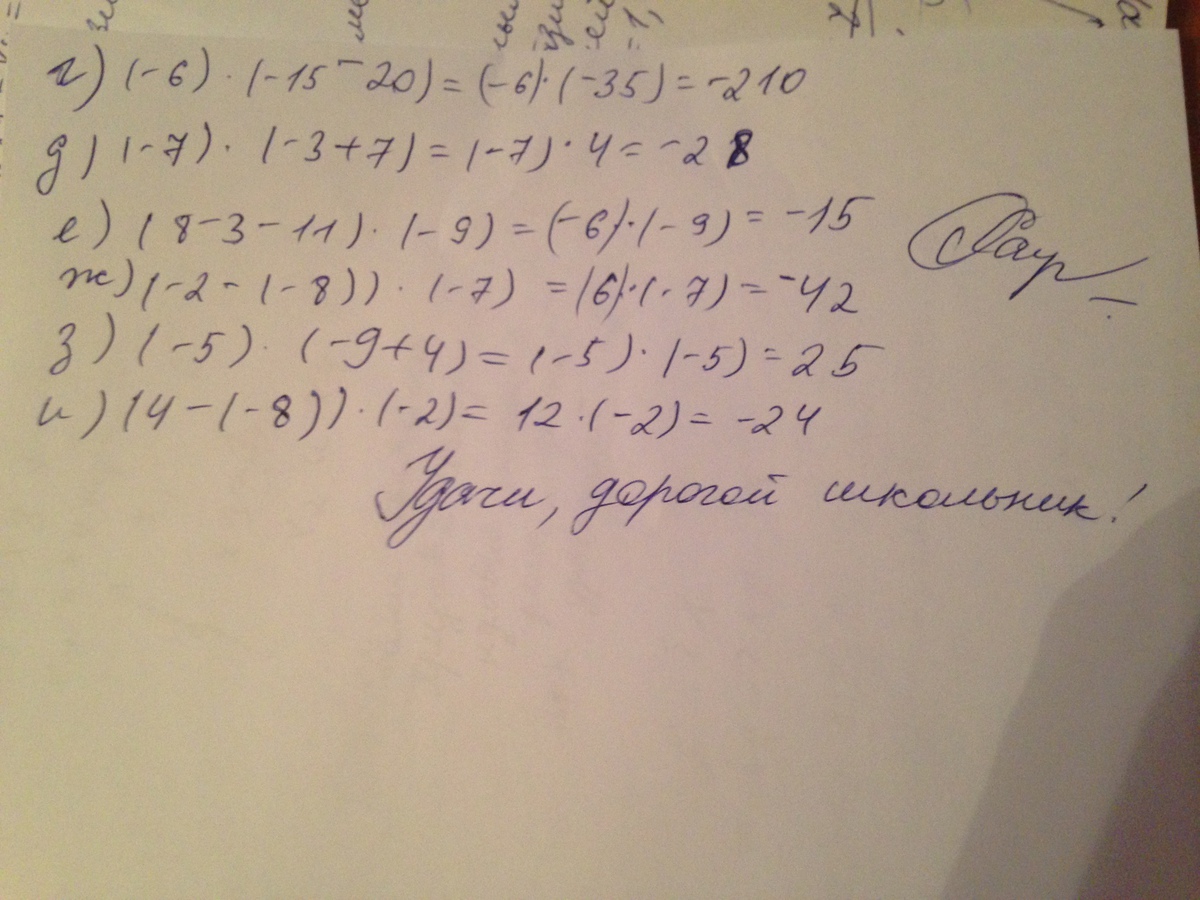 г) (-6) · (-15-20) = (-6) · (-35) = -210
д) (-7) · (-3+7) = (-7) · 4 = -28
е) (8-3-11) · (-9) = (-6) · (-9) = -15
ж) (-2-(-8)) · (-7) = (6) · (-7) = -42
з) (-5) · (-9+4) = (-5) · (-5) = 25
и) (4-(-8)) · (-2) = 12 · (-2) = -24
Удачи, дорогой школьник!